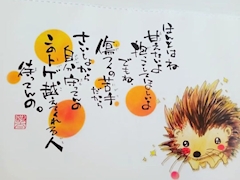 ほんとはね
甘えたいよ
抱っこしてほしいよ
でもね
傷つくの苦手
だから
さいしょから
自分守ってんの
このトゲ越えてくれる人
待ってんの。